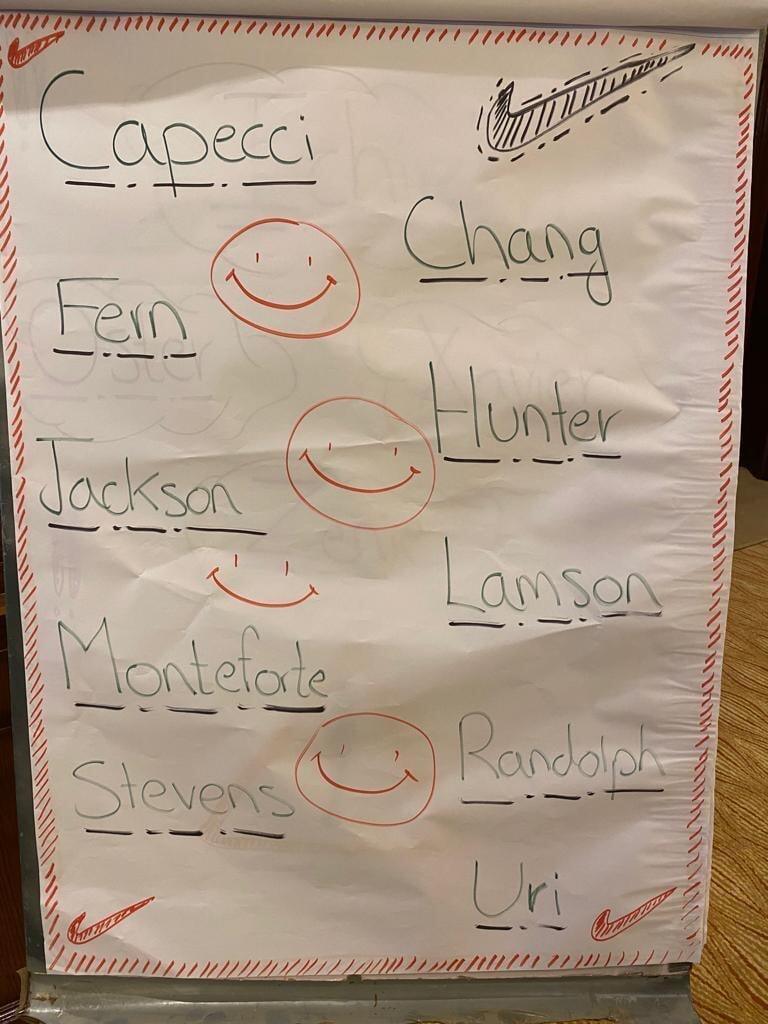 Capecci
Chang
Fern
Hunter
Jackson
Lamson
Monteforte
Randolph
Stevens
Uri